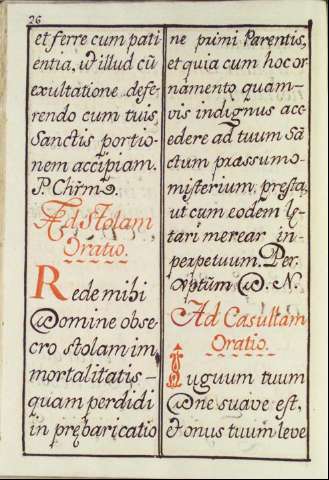 26
et ferre cum pati
entia, ut illud cū
exultatione defe
rendo cum tuis
Sanctis portio-
nem accipiam.
P. Chrm̄.
Ad Stolam
Oratio.
Rede mihi
Domine obse
cro stolam im
mortalitatis -
quam perdidi
in pręvaricatio
ne primi Parentis,
et quia cum hoc or
namento quam-
vis indignus acc
edere ad tuum Sā
ctum præssumo-
misterium, pręsta,
ut cum eodem lę-
tari merear in-
perpetuum. Per.
D. N.
Ad Casullam
Oratio.
Iuguum tuum
Dne suave est,
et onus tuum leve